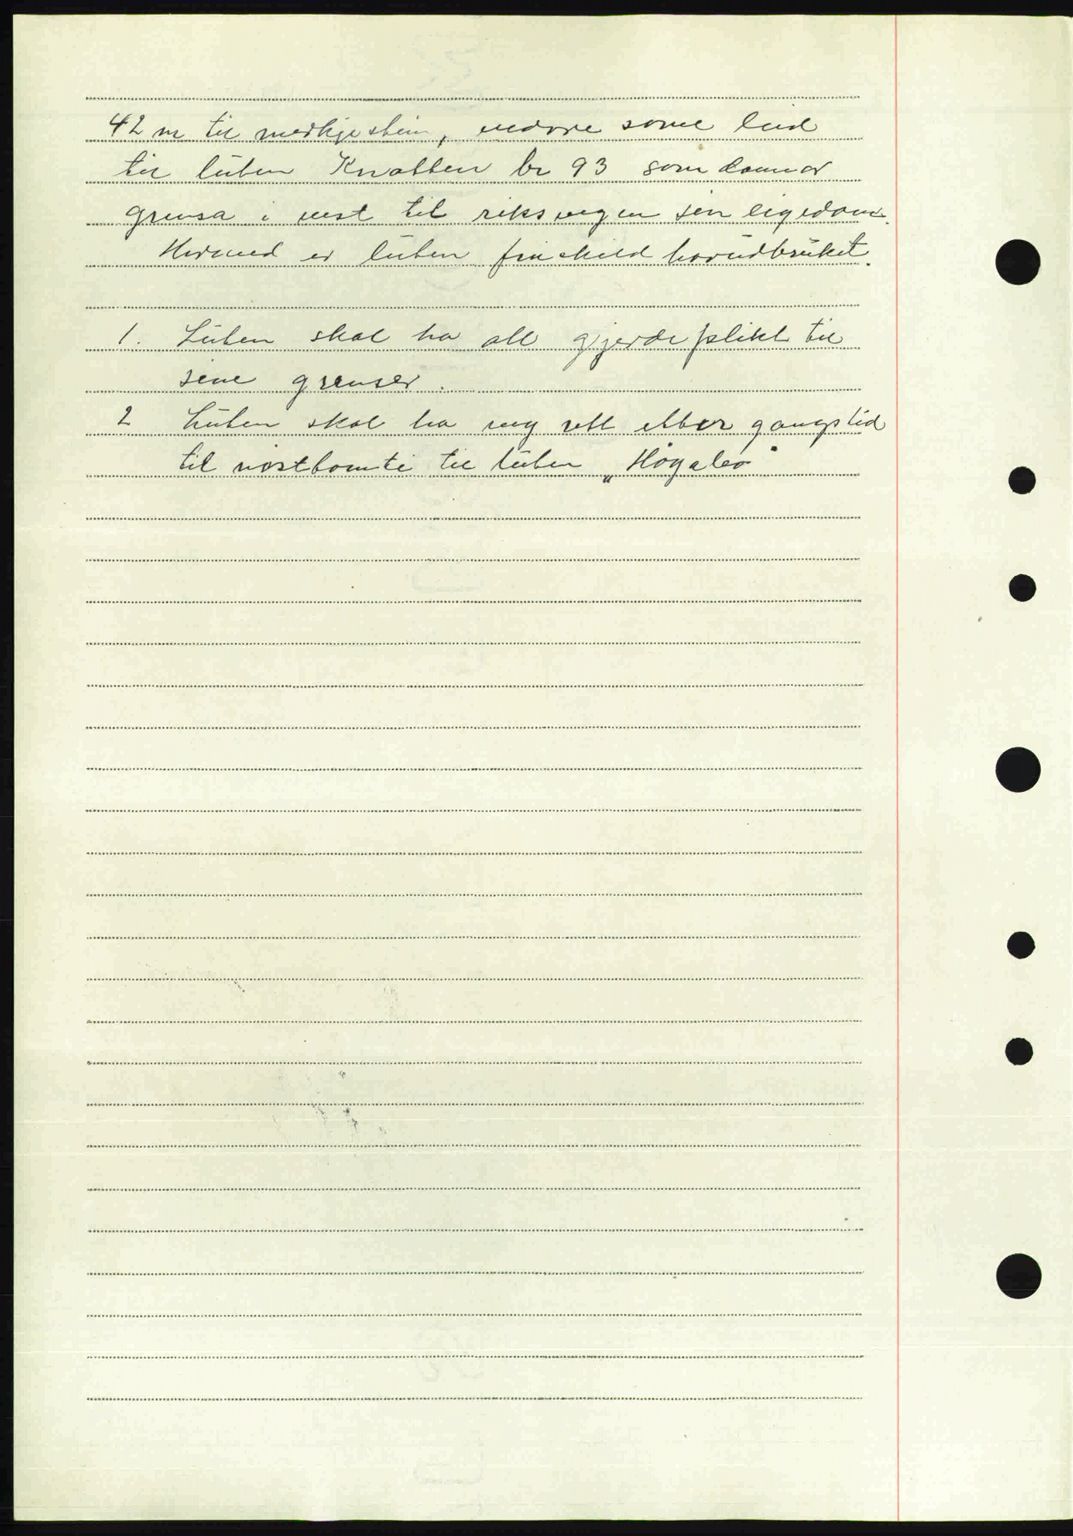 42 m til merkjestein, vidare same leid
til luten Knatten br 93 som dannar
grensa i vest til riksvegen sin eigedom.
Hermed er luten fråskild hovudbruket.
1. Luten skal ha all gjerdeplikt til
sine grenser.
2 Luten skal ha veg rett etter gangstid
til nøsttomti til luten „Høgaleo"